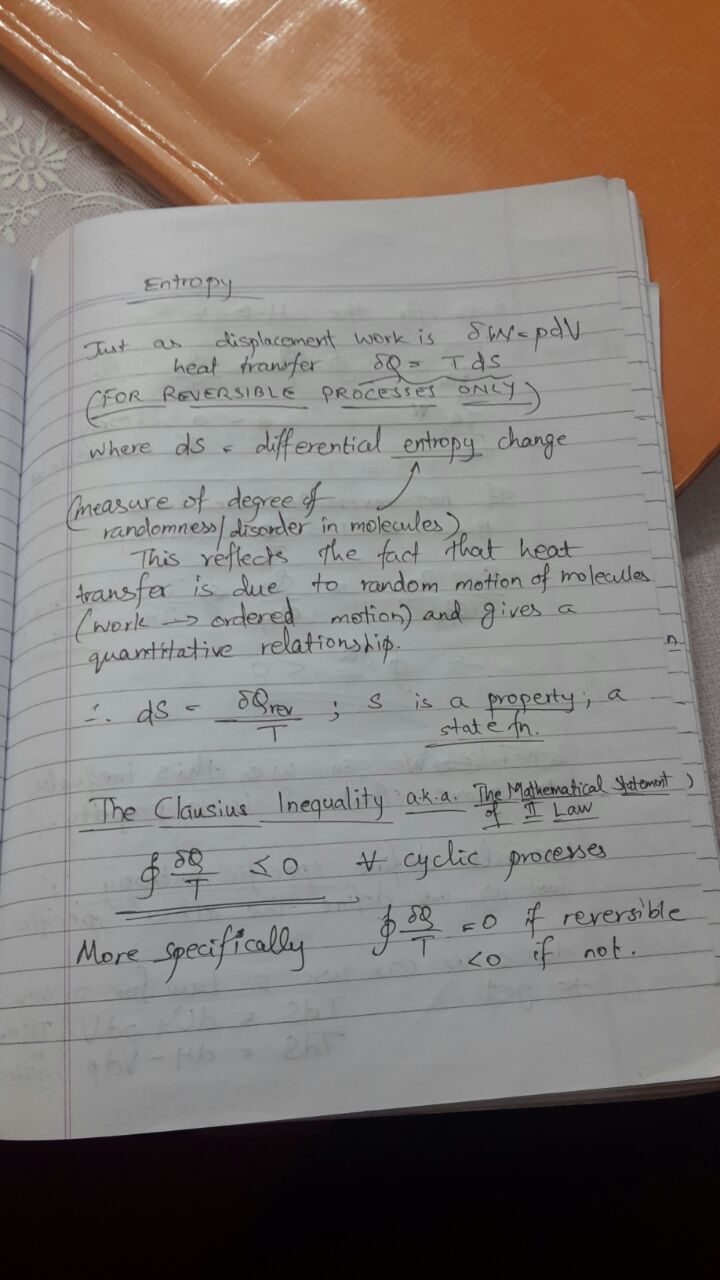 Entropy
Just as displacement work is δW = pdV
heat transfer δQ = T ds
(FOR REVERSIBLE PROCESSES ONLY)
where ds = differential entropy change
(measure of degree of
randomness/disorder in molecules)
This reflects the fact that heat
transfer is due to random motion of molecules
(work → ordered motion) and gives a
quantitative relationship.
∴ ds = δQrev / T ; S is a property, a
state fn.
The Clausius Inequality a.k.a. The Mathematical Statement
of II Law
∮ δQ/T ≤ 0 ∀ cyclic processes
More specifically ∮ δQ/T = 0 if reversible
<0 if not.
TdS = dH - Vdp